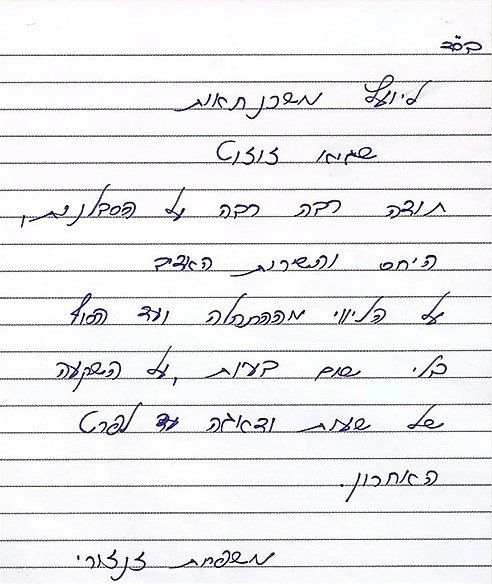 בס"ד
ליועץ משכנתאות
שגיא
תודה רבה רבה על הסבלנות,
היחס והשירות האדיב
על הליווי מההתחלה ועד הסוף
בלי שום בעיות, על השקעה
של שעות ודאגה עד לפרט
האחרון.
משפחת